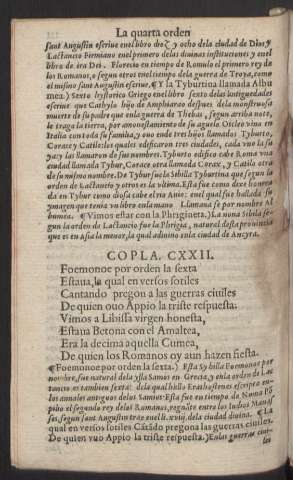 La quarta orden
sant Augustin escriue enel libro dezy ocho dela ciudad de Dios, y
Lactancio Firmiano enel primero delas diuinas instituciones y enel
libro de ira Dei. Florecio en tiempo de Romulo el primero rey de
los Romanos, o segun otros enel tiempo dela guerra de Troya, como
el mismo sant Augustin escriue. ¶ Y la Tyburtina llamada Albu
mea.) Sexto hystorico Griego enel libro sexto delas antiguedades
escriue que Cathylo hijo de Amphiarao despues dela monstruosa
muerte de su padre que enla guerra de Thebas, segun arriba note,
le trago la tierra, por amonestamiento de su aguelo Oicleo vino en
Italia con toda su familia, y ouo ende tres hijos llamados Tyburto,
Corace y Catilo: los quales edificaron tres ciudades, cada vno la su
ya: y las llamaron de sus nombres. Tyburto edifico cabe Roma vna
ciudad llamada Tybur, Corace otra llamada Corce, y Catilo otra
de su mismo nombre. De Tybur fue la Sibilla Tyburtina que segun la
orden de Lactancio y otros es la vltima. Esta fue como dize honrra
da en Tybur como diosa cabe el rio Anie: enel qual fue hallada su
ymagen que tenia vn libro enla mano Llamase por nombre Al
bumea. ¶ Vimos estar con la Phrigineta.) La nona Sibila se-
gun la orden de Lactancio fue la Phrigia, natural desta prouincia
que es en asia la menor, la qual adiuino enla ciudad de Ancyra.
COPLA. CXXII.
Foemonoe por orden la sexta
Estaua, la qual en versos sotiles
Cantando pregon a las guerras ciuiles
De quien ouo Appio la triste respuesta:
Vimos a Libissa virgen honesta,
Estaua Betona con el Amaltea,
Era la decima aquella Cumea,
De quien los Romanos oy aun hazen fiesta.
¶ Foemonoe por orden la sexta.) Esta Sybilla Foemonoe por
nombre, fue natural dela ysla Samos en Grecia, y enla orden de Lac
tancio es tambien sexta: dela qual hallo Erathostenes escripto en-
los annales antiguos delos Samios: Esta fue en tiempo de Numa Pō
pilio el segundo rey delos Romanos, reynãte entre los Iudios Manas
ses, segun sant Augustin trae enel li. xviij. dela ciudad diuina. ¶ La
qual en versos sotiles Cātãdo pregona las guerras ciuiles.
De quien vuo Appio la triste respuesta.) Enlas guerras ciui-
les